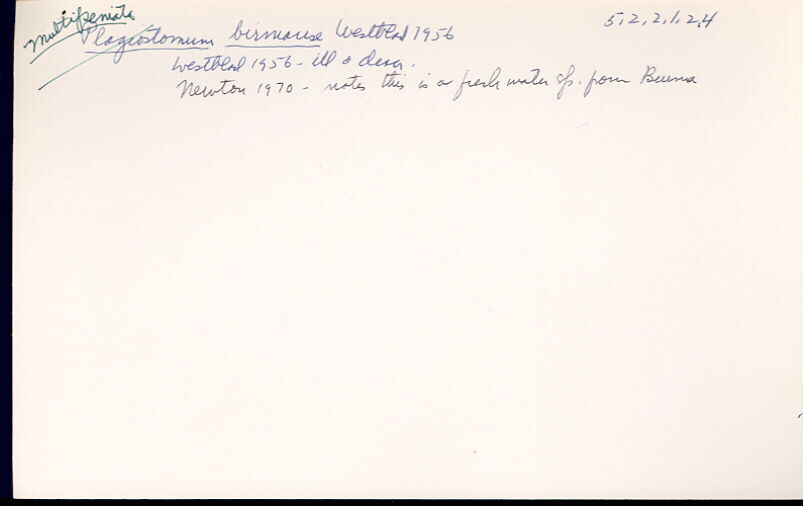 Multipeniata
Plagiostomum birmanse Westblad 1956 5,2,2,1,2,4
Westblad 1956 - ill & descr.
Newton 1970 - notes this is a fresh water sp. from Burma